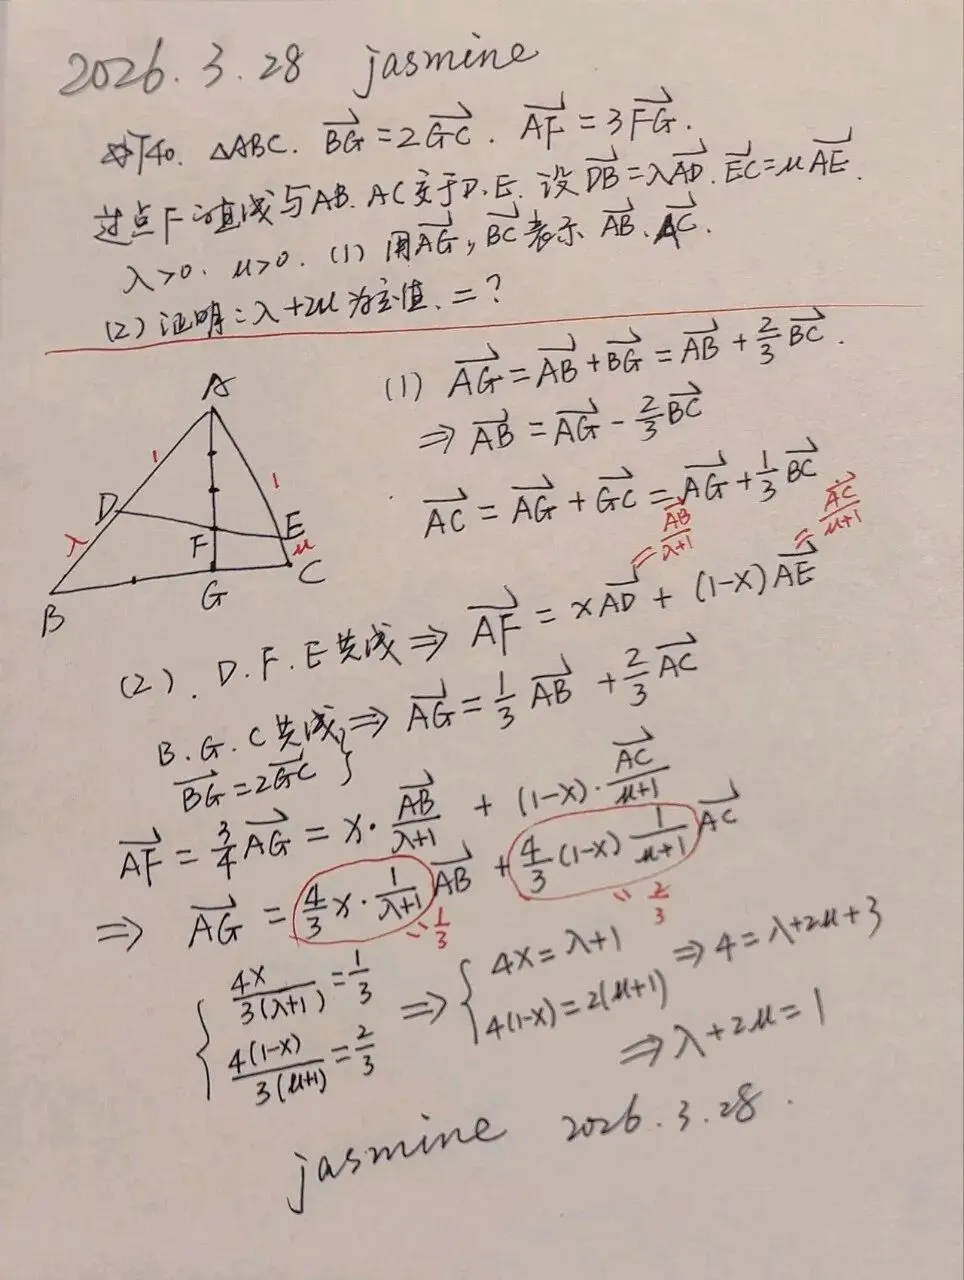 2026.3.28 jasmine
如图. △ABC. \overrightarrow{BG}=2\overrightarrow{GC}. \overrightarrow{AF}=3\overrightarrow{FG}.
过点F的直线与AB. AC交于D. E. 设\overrightarrow{DB}=λ\overrightarrow{AD}. \overrightarrow{EC}=μ\overrightarrow{AE}.
λ>0. μ>0. (1) 用\overrightarrow{AG}, \overrightarrow{BC}表示 \overrightarrow{AB}. \overrightarrow{AC}.
(2) 证明: λ+2μ为定值. =?
A
1
1
D
E
λ
F
μ
B
G
C
(1) \overrightarrow{AG}=\overrightarrow{AB}+\overrightarrow{BG}=\overrightarrow{AB}+\frac{2}{3}\overrightarrow{BC}.
⇒ \overrightarrow{AB}=\overrightarrow{AG}-\frac{2}{3}\overrightarrow{BC}
\overrightarrow{AC}=\overrightarrow{AG}+\overrightarrow{GC}=\overrightarrow{AG}+\frac{1}{3}\overrightarrow{BC}
=\frac{\overrightarrow{AB}}{λ+1}
=\frac{\overrightarrow{AC}}{μ+1}
(2). D. F. E共线⇒ \overrightarrow{AF}=x\overrightarrow{AD}+(1-x)\overrightarrow{AE}
B. G. C共线 } ⇒ \overrightarrow{AG}=\frac{1}{3}\overrightarrow{AB}+\frac{2}{3}\overrightarrow{AC}
\overrightarrow{BG}=2\overrightarrow{GC}
\overrightarrow{AF}=\frac{3}{4}\overrightarrow{AG}=x·\frac{\overrightarrow{AB}}{λ+1}+(1-x)·\frac{\overrightarrow{AC}}{μ+1}
⇒ \overrightarrow{AG}=\frac{4}{3}x·\frac{1}{λ+1}\overrightarrow{AB}+\frac{4}{3}(1-x)\frac{1}{μ+1}\overrightarrow{AC}
=\frac{1}{3}
=\frac{2}{3}
{ \frac{4x}{3(λ+1)}=\frac{1}{3} ⇒ { 4x=λ+1 ⇒ 4=λ+2μ+3
\frac{4(1-x)}{3(μ+1)}=\frac{2}{3} 4(1-x)=2(μ+1)
⇒λ+2μ=1
jasmine 2026.3.28.